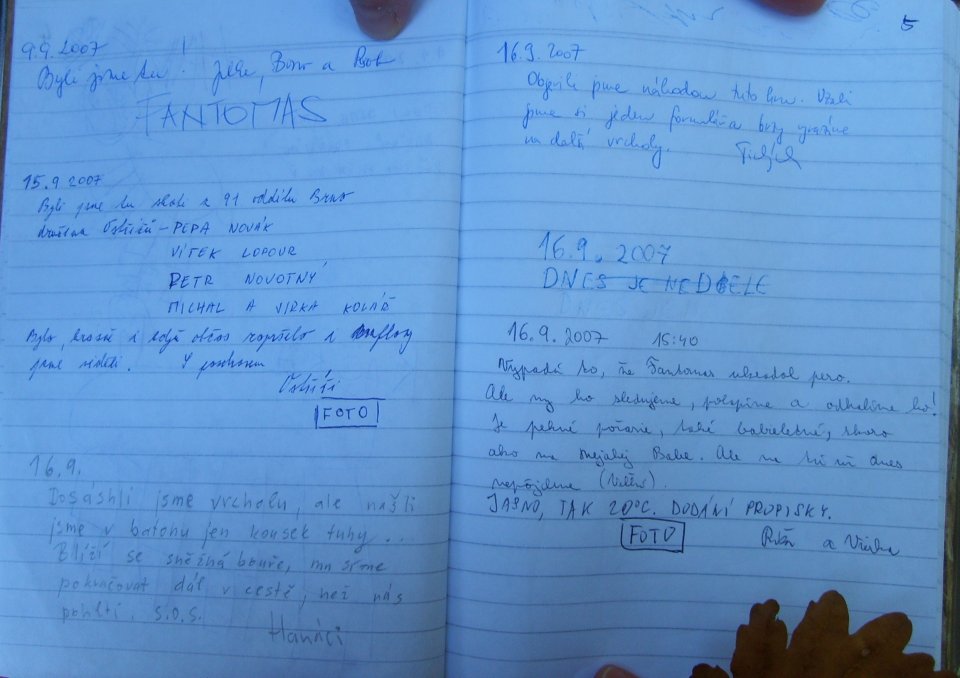 9.9.2007
Byli jsme tu! a
FANTOMAS
15.9 2007
Byli jsme tu skole z 91 oddílu Brno
družina - PEPA NOVÁK
VÍTEK LOPOUR
PETR NOVOTNÝ
MICHAL A JIRKA KOLÁŘ
Bylo krásně i když občas
jsme viděli. S pozdravem
FOTO
16.9.
Dosáhli jsme vrcholu, ale našli
jsme v batohu jen kousek tuhy...
Blíží se sněžná bouře, musíme
pokračovat dál v cestě, než nás
pohltí. S.O.S.
Hanáci
5
16.9.2007
Objevili jsme náhodou tuto horu. Vzali
jsme si jeden formulář a brzy vyrazíme
na další vrcholy.
16.9.2007
DNES JE NEDĚLE
16.9.2007 15:40
Vypadá to, že Fantomas ukradol pero.
Ale my ho sledujeme, polapíme a odhalíme ho!
Je pekné počasie, také babieletné, skoro
ako na Babe. Ale na tú už dnes
nepôjdeme
JASNO, TAK 20°C. DODÁNÍ PROPISKY.
FOTO
a